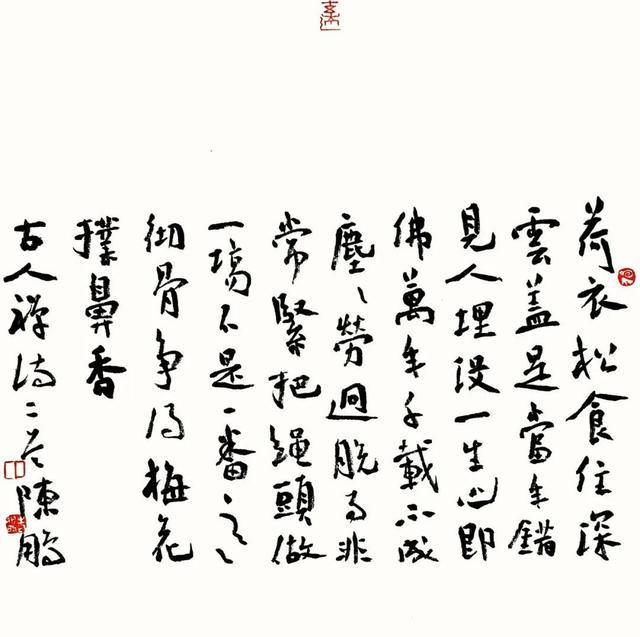 荷衣松食住深
雲盖是當年錯
見人埋没一生心即
佛萬年千載不成
塵〻勞迥脱事非
常緊把繩頭做
一場不是一番寒
彻骨争得梅花
撲鼻香
古人禅诗二首陳鵬